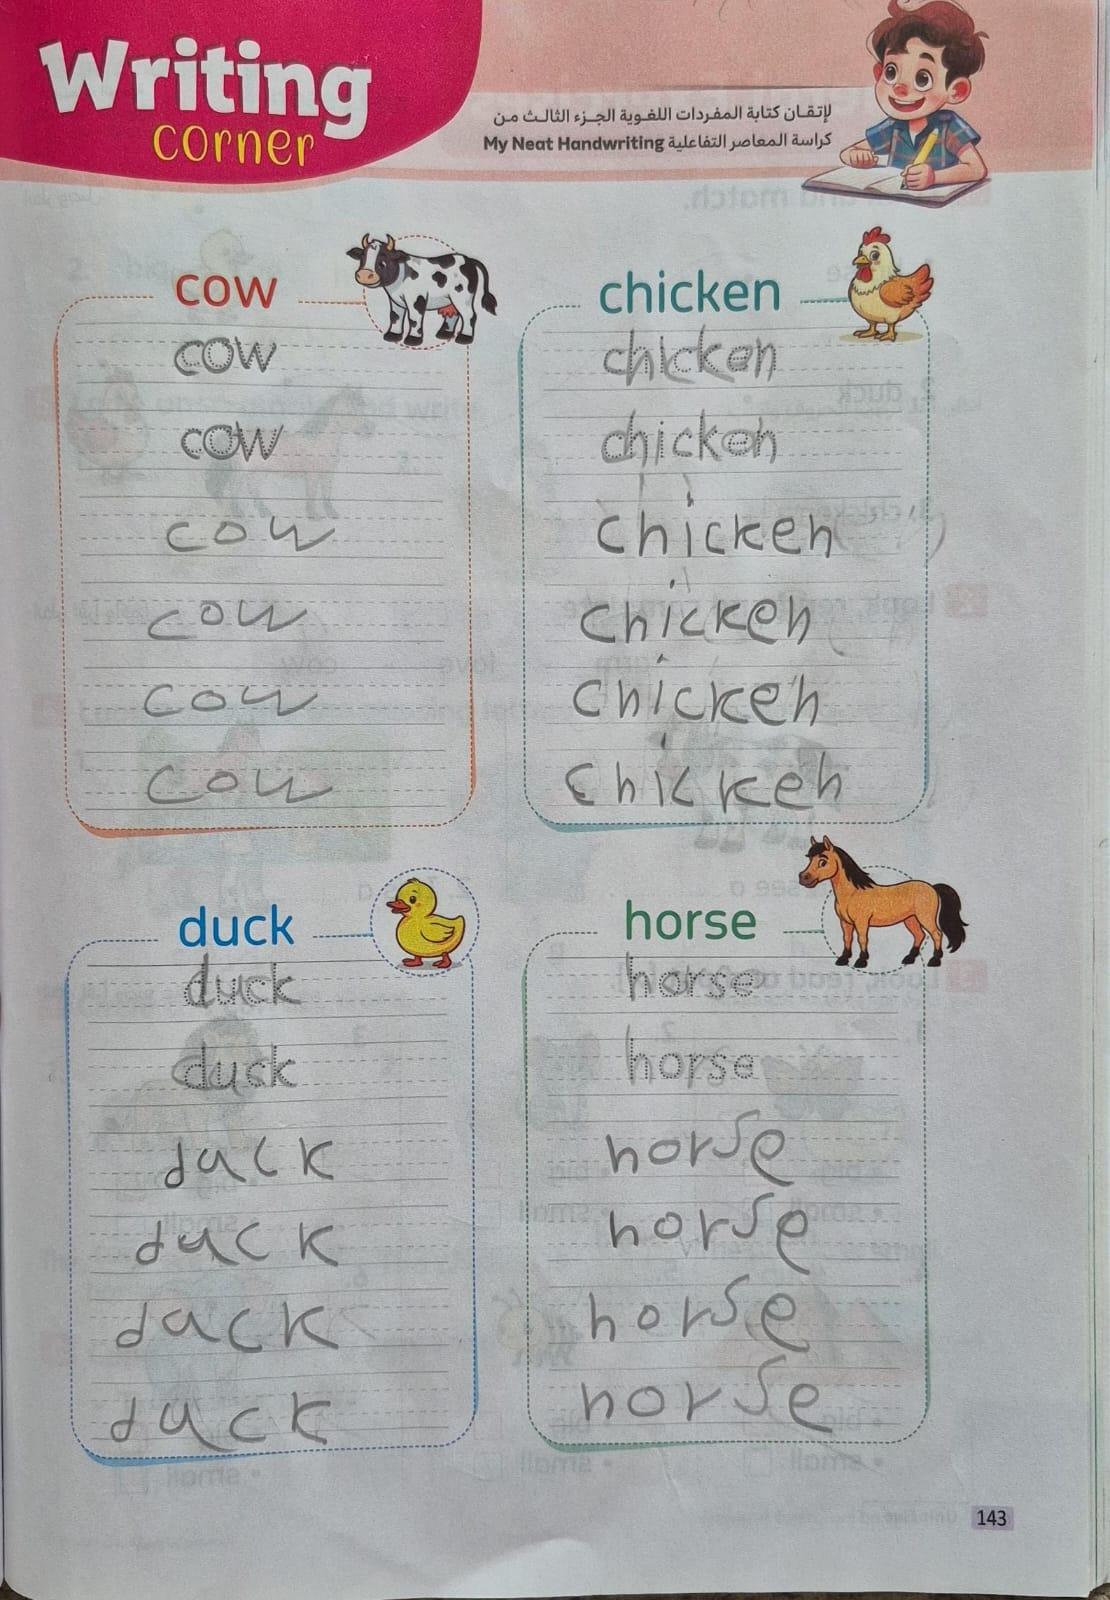 Writing
corner
لإتقان كتابة المفردات اللغوية الجزء الثالث من
كراسة المعاصر التفاعلية My Neat Handwriting
cow
cow
cow
cow
cow
cow
cow
chicken
chicken
chicken
chicken
chicken
chicken
chicken
duck
duck
duck
duck
duck
duck
duck
horse
horse
horse
horse
horse
horse
horse
143